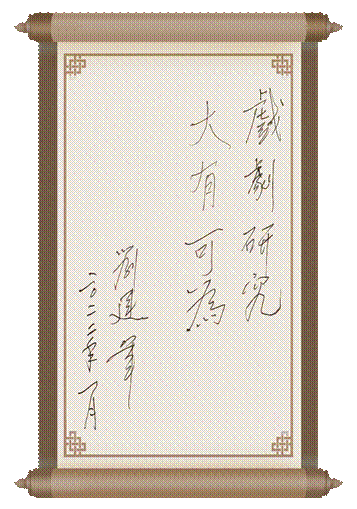 戲劇研究
大有可為
劉建
二〇二二年一月